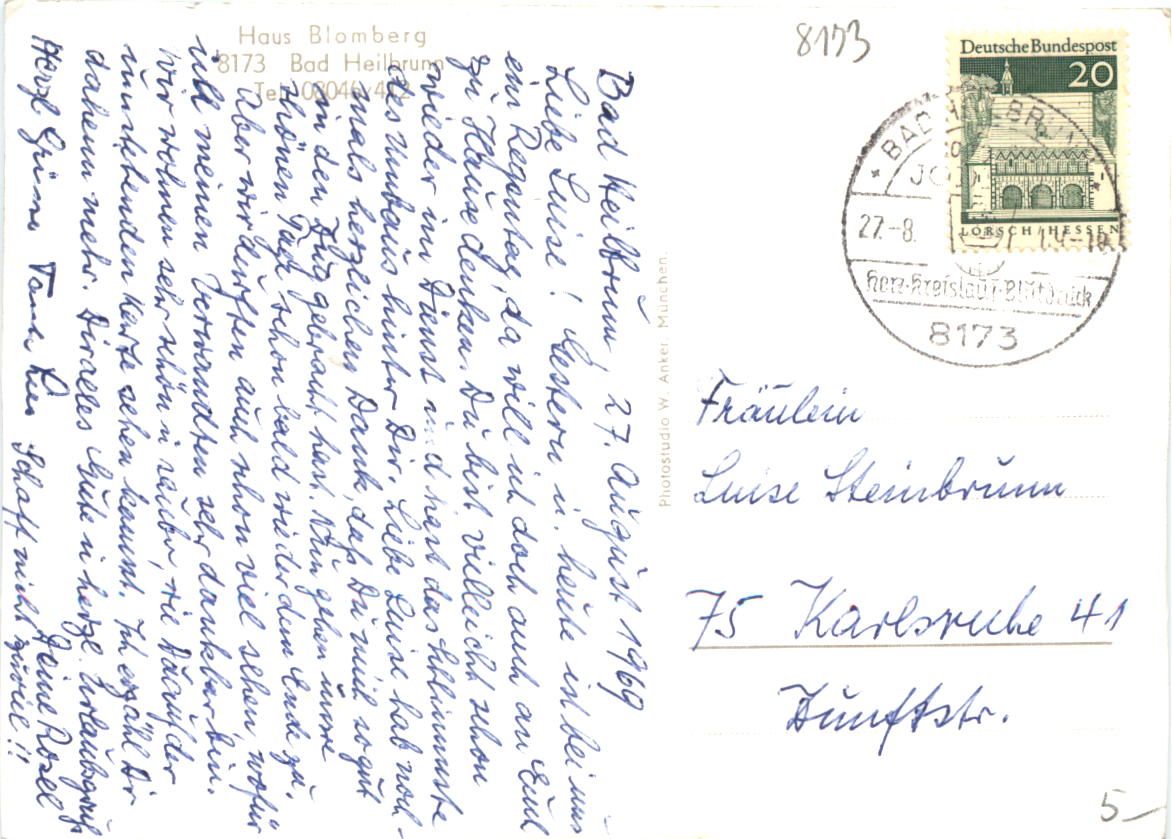 Haus Blomberg
8173 Bad Heilbrunn
Tel. 08046/412
8173
Deutsche Bundespost
20
LORSCH/HESSEN
BAD HEILBRUNN
27.-8.
Herz-Kreislauf-Blutdruck
8173
Bad Heilbrunn, 27. August 1969
Liebe Luise! Gestern u. heute ist bei uns
ein Regentag, da will ich doch auch an Euch
zu Hause denken. Du bist vielleicht schon
wieder im Dienst und hast das Schlimmste
des Umbaus hinter Dir. Liebe Luise hab noch-
mals herzlichen Dank, daß Du mich so gut
an den Zug gebracht hast. Nun gehen unsre
schönen Tage schon bald wieder dem Ende zu.
Aber wir durften auch schon viel sehen, wofür
ich meinen Verwandten sehr dankbar bin.
Wir wohnen sehr schön u. sauber, wie Du auf der
umstehenden Karte sehen kannst. Ich erzähl Dir
daheim mehr. Dir alles Gute u. herzl. Urlaubsgrüße
Deine Rosel
Herzl Grüsse Tante Lies Schaff nicht zuviel!!
Photostudio W. Anker, München.
Fräulein
Luise Steinbrunn
75 Karlsruhe 41
Zunftstr.
5-